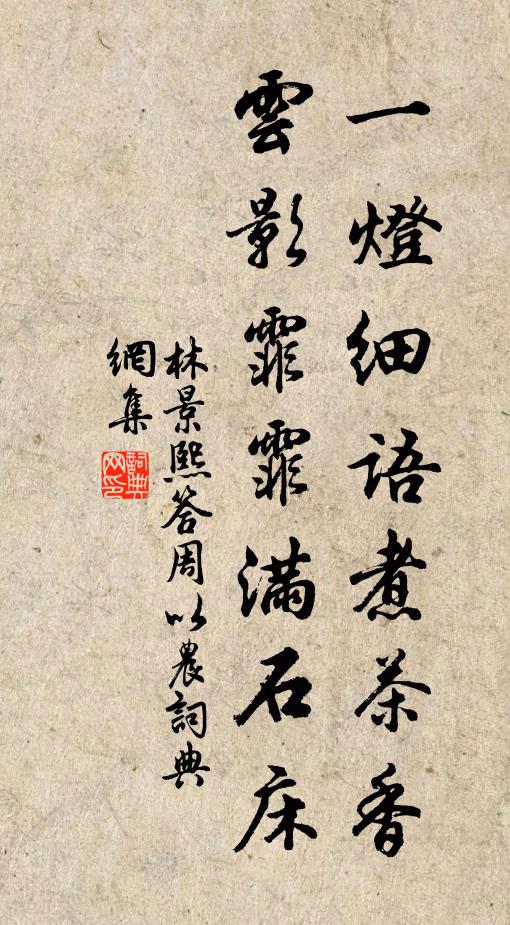 一燈細語煮茶香
雲影霏霏滿石床
林景熙答周以農詞典
網集
詞典網印